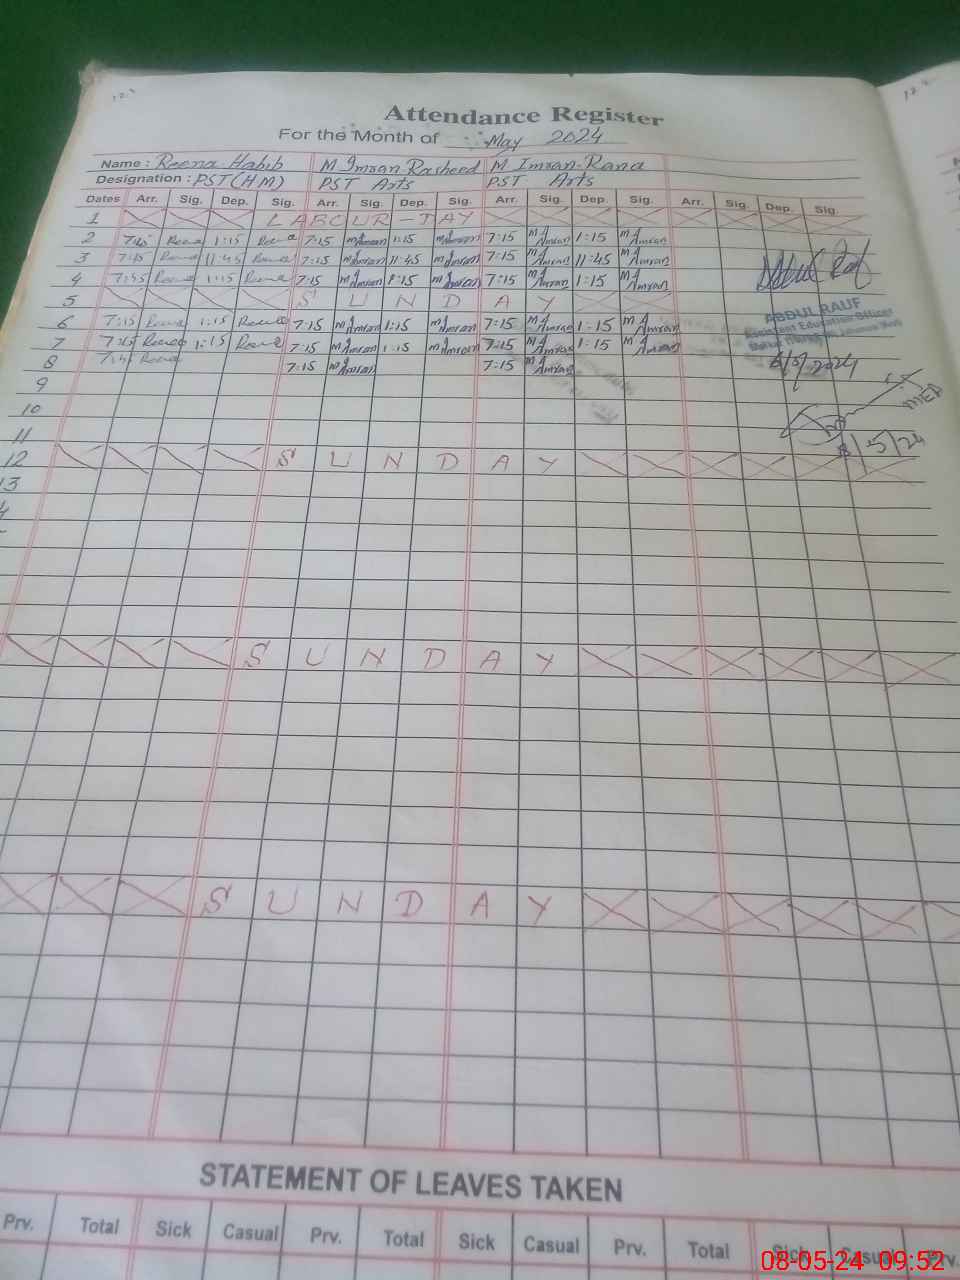 Attendance Register
For the Month of May 2024
Name : Reena Habib M Imran Rasheed M Imran Rana
Designation : PST (HM) PST Arts PST Arts
Dates Arr. Sig. Dep. Sig. Arr. Sig. Dep. Sig. Arr. Sig. Dep. Sig. Arr. Sig. Dep. Sig.
1 LABOUR - DAY
2 7:45 Reena 1:15 Reena 7:15 M Imran 1:15 M Imran 7:15 M A Imran 1:15 M A Imran
3 7:45 Reena 11:45 Reena 7:15 M Imran 11:45 M Imran 7:15 M A Imran 11:45 M A Imran
4 7:45 Reena 1:15 Reena 7:15 M Imran 1:15 M Imran 7:15 M A Imran 1:15 M A Imran
5 SUNDAY
6 7:15 Reena 1:15 Reena 7:15 M Imran 1:15 M Imran 7:15 M A Imran 1:15 M A Imran
7 7:45 Reena 1:15 Reena 7:15 M Imran 1:15 M Imran 7:15 M A Imran 1:15 M A Imran
8 7:45 Reena 7:15 M Imran 7:15 M A Imran
9
10
11
12 SUNDAY
13
SUNDAY
SUNDAY
ABDUL RAUF
Assistant Education Officer
6/5/2024
MEA
8/5/24
STATEMENT OF LEAVES TAKEN
Prv. Total Sick Casual Prv. Total Sick Casual Prv. Total Sick Casual Prv.
08-05-24 09:52